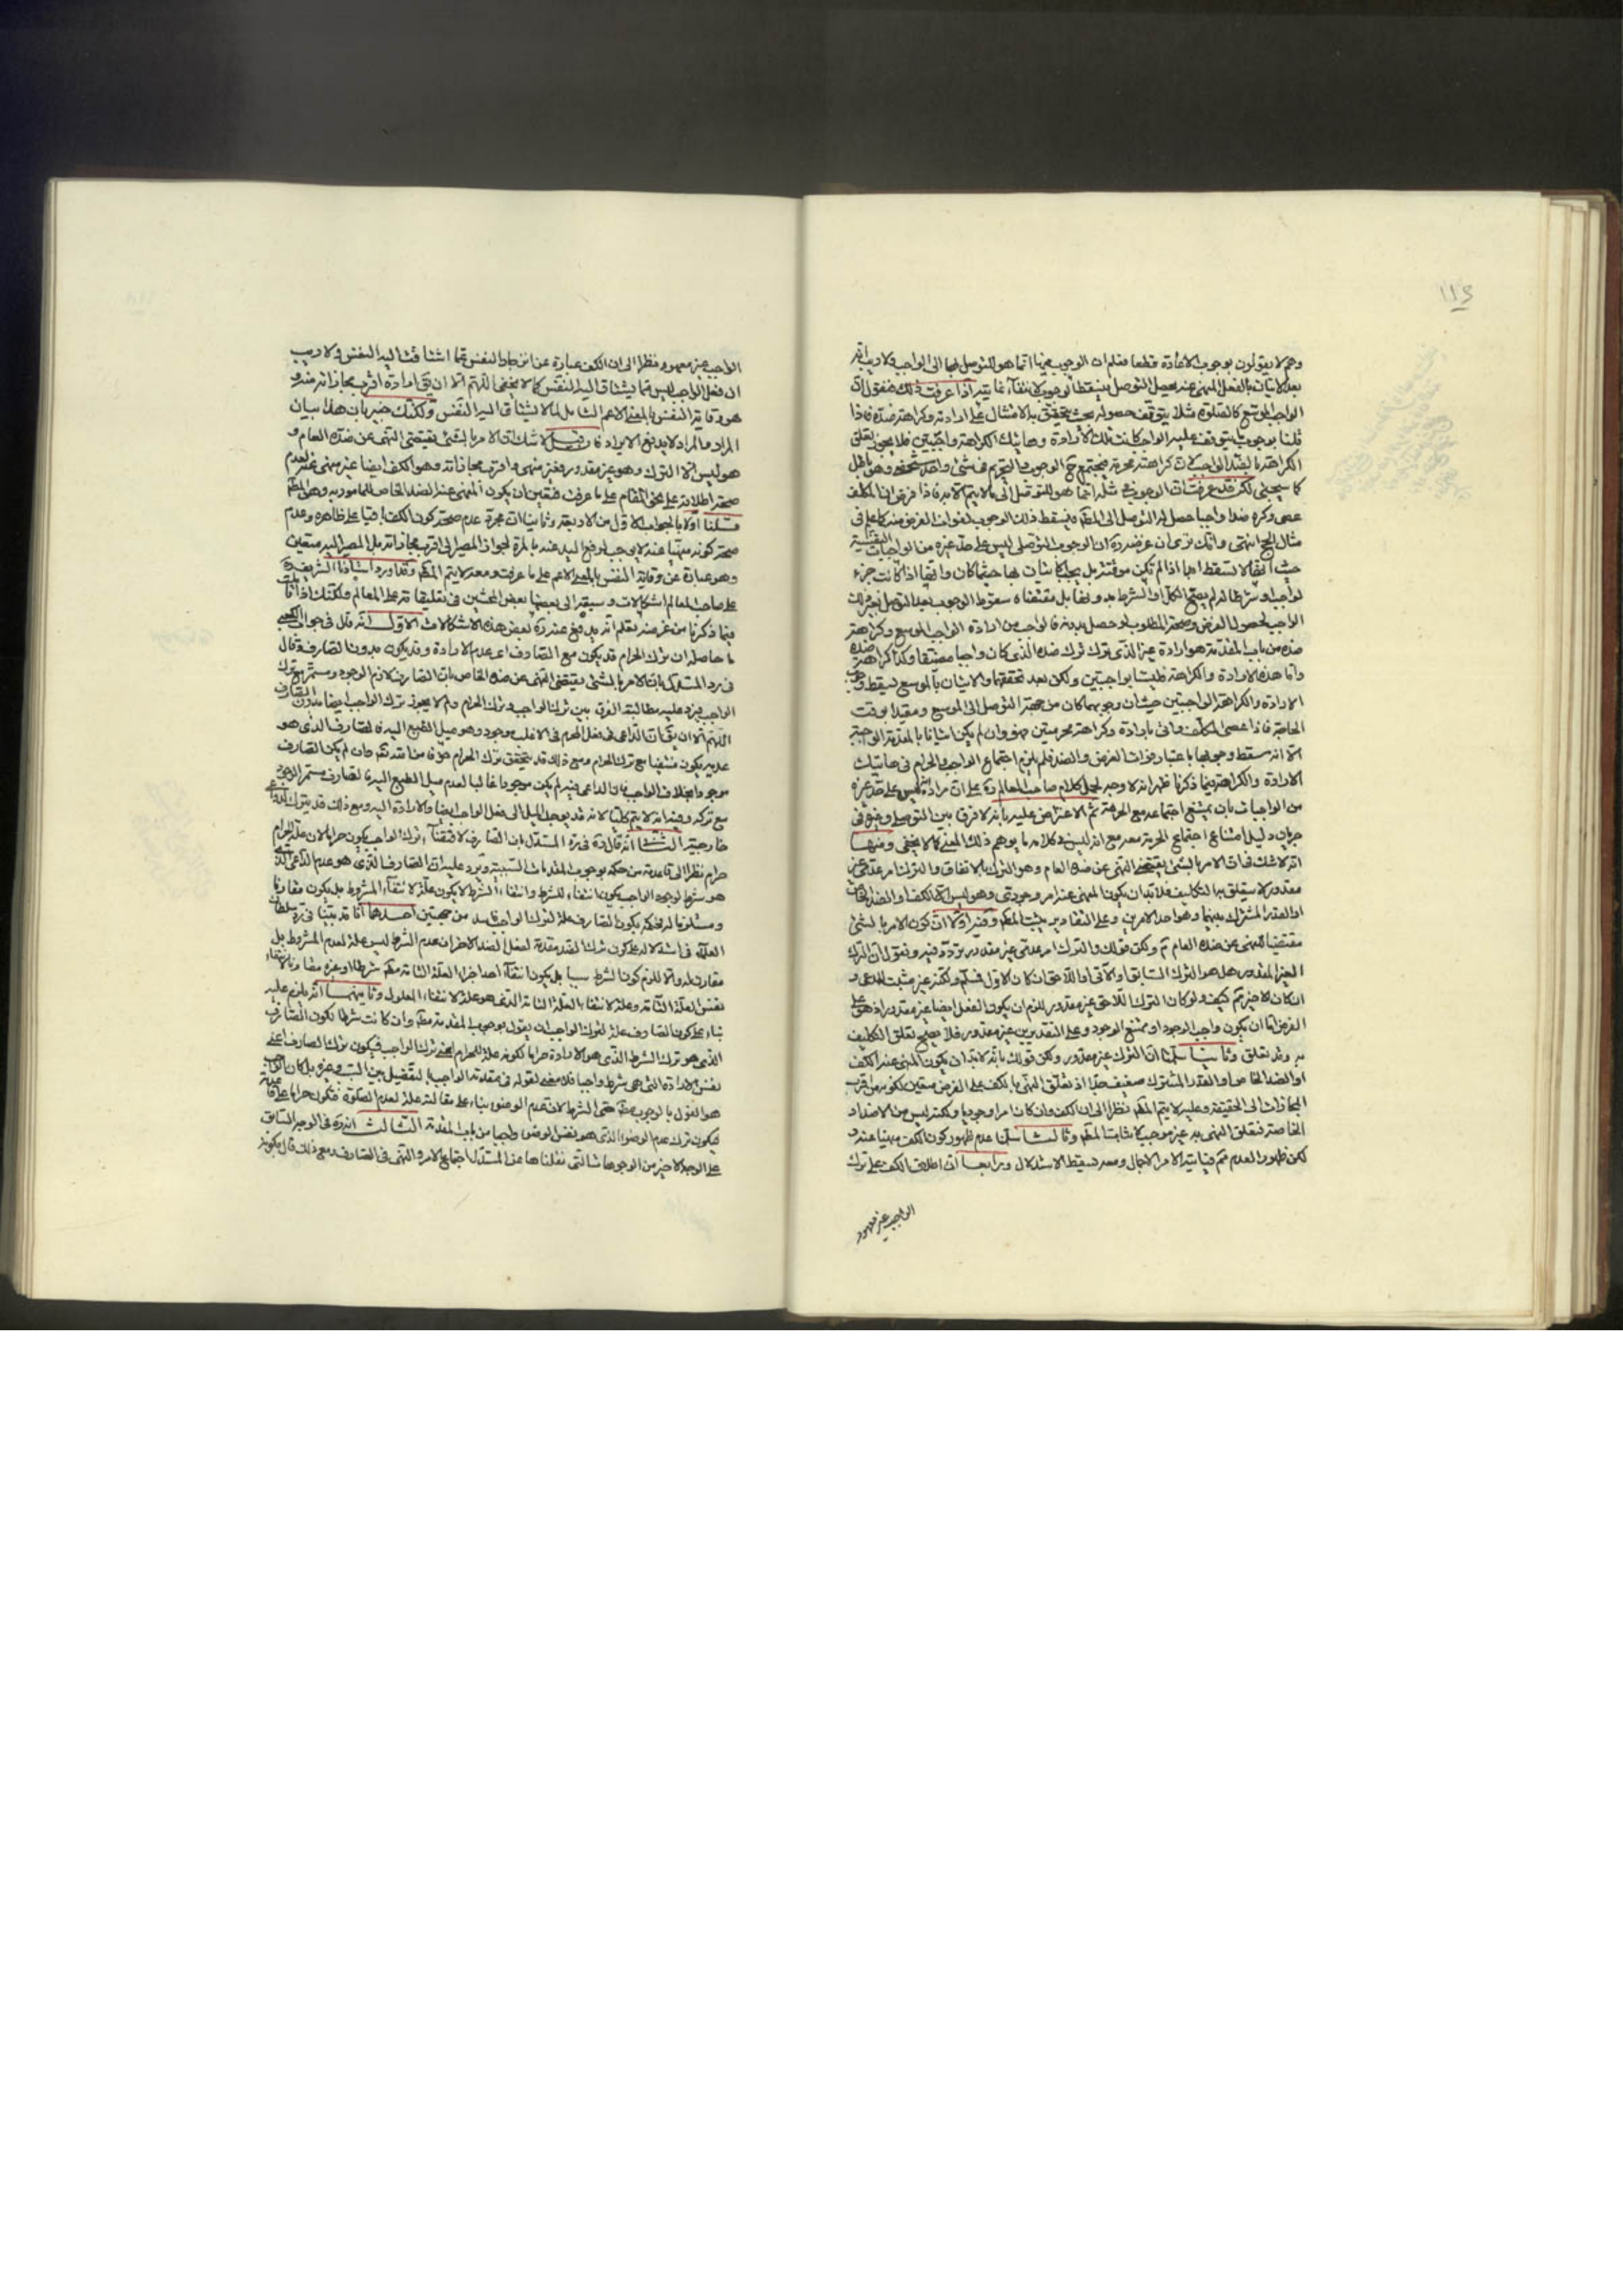 ١١٤
وهم لا يقولون بوجوب الاعادة قطعا فعلم ان الوجوب فيها انما هو للتوصل بها الى الواجب ولا ريب انه
بعد الاتيان بالفعل المنهي عنه يحصل التوصل فيسقط الوجوب لانتفاء غايته اذا عرفت ذلك فنقول ان
الواجب الموسع كالصلوة مثلا يتوقف حصوله بحيث يتحقق به الامتثال على ارادته وكراهة ضده فاذا
قلنا بوجوب ما يتوقف عليه الواجب كانت تلك الارادة وهاتيك الكراهة واجبتين فلا يجوز تعلق
الكراهة بالضد الواجب لان كراهته محرمة فيجتمع ح الوجوب والتحريم في شئ واحد شخصي وهو باطل
كما سيجئ لكن قد عرفت ان الوجوب في مثله انما هو للتوصل الى ما لا يتم الا به فاذا فرض ان المكلف
عصى وكره ضدا واجبا حصل له التوصل الى المطلوب فيسقط ذلك الوجوب لفوات الغرض منه كما علم في
مثال الحج انتهى وانك ترى ان غرضه ره ان الوجوب التوصلي ليس على حد غيره من الواجبات النفسية
حيث انها لا تسقط
لواجب او شرطا له لم يصح الكل او المشروط بدونها بل مقتضاه سقوط الوجوب بعد التوصل بغير ذلك
الواجب لحصول الغرض وصحة المطلوب لو حصل بدونه فالواجب من ارادة الواجب الموسع وكراهة
ضده من باب المقدمة هو ارادة غير الذي
واما هذه الارادة والكراهة فليستا بواجبتين ولكن بعد تحققهما والاتيان بالموسع يسقط وجوب
الارادة والكراهة الواجبتين حيث ان وجوبهما كان من جهة التوصل الى الموسع ومقيدا بوقت
الحاجة فاذا عصى المكلف واتى بارادة وكراهة محرمتين فهو وان لم يكن اتيانا بالمقدمة الواجبة
الا انه سقط وجوبها باعتبار فوات الغرض والضد فلم يلزم اجتماع الواجب والحرام في هاتيك
الارادة والكراهة وبما ذكرنا ظهر انه لا وجه لحمل كلام صاحب المعالم ره على ان مراده انه ليس على حد غيره
من الواجبات بان يمتنع اجتماعه مع الحرمة ثم الاعتراض عليه بانه لا فرق بين التوصلي وغيره في
جريان دليل امتناع اجتماع الحرمة معه مع انه ليس في كلامه ما يوهم ذلك المعنى كما لا يخفى ومنها
انه لا شك في ان الامر بالشئ يقتضي النهي عن ضده العام وهو الترك بالاتفاق والترك امر عدمي غير
مقدور لا يتعلق به التكليف فلا بد ان يكون المنهي عنه امر وجودي وهو ليس الا الكف او الضد الخاص
او القدر المشترك بينهما وهو احد الامرين وعلى التقادير يثبت المطلوب وفيه اولا ان كون الامر بالشئ
مقتضيا للنهي عن ضده العام ثم ولكن قولك والترك امر عدمي غير مقدور نرده فيه ونقول ان الترك
الغير المقدور هل هو الترك السابق والآتي او اللاحق ان كان الاول فمسلم ولكنه غير مثبت للمدعى و
ان كان الاخير ثم كيف ولو كان الترك اللاحق غير مقدور للزم ان يكون الفعل ايضا غير مقدور اذ هو على
الفرض اما ان يكون واجب الوجود او ممتنع الوجود وعلى التقديرين غير مقدور فلا يصح تعلق التكليف
به وقد تعلق وثانيا سلمنا ان الترك غير مقدور ولكن قولك بانه لا بد ان يكون المنهي عنه الكف
او الضد الخاص او القدر المشترك ضعيف جدا اذ تعلق النهي بالكف على الفرض متعين لكونه من اقرب
المجازات الى الحقيقة وعليه لا يتم المطلوب نظرا الى ان الكف وان كان امرا وجوديا ولكنه ليس من الاضداد
الخاصة فتعلق النهي به غير موجب لاثبات المطلوب وثالثا سلمنا عدم ظهور كون الكف منهيا عنه و
لكن ظهور العدم ثم فغايته الامر الاجمال ومعه يسقط الاستدلال ورابعا ان اطلاق الكف على ترك
الواجب غير معهود
الواجب غير معهود نظرا الى ان الكف عبارة عن انزجار النفس عما اشتاقت اليه النفس ولا ريب
ان فعل الواجب ليس مما يشتاق اليه النفس كما لا يخفى اللهم الا ان يق ارادة اقرب مجازاته منه و
هو وقاية النفس بالمعنى الاعم الشامل لما لا يشتاق اليه النفس ولكنك خبير بان هذا بيان
المراد والمراد لا يدفع الايراد فان قيل لا شك ان الامر بالشئ يقتضي النهي عن ضده العام و
هو ليس الا الترك وهو غير مقدور فغير منهي واقرب مجازاته وهو الكف ايضا غير منهي عنه لعدم
صحة اطلاقه على نحو المقام على ما عرفت فتعين ان يكون المنهي عنه الضد الخاص للمامور به وهو المطلوب
قلنا اولا بالجواب الاول من الاربعة وثانيا ان مجرد عدم صحة كون الكف باقيا على ظاهره وعدم
صحة كونه منهيا عنه لا يوجب رفع اليد عنه بالمرة لجواز المصير الى اقرب مجازاته بل المصير اليه متعين
وهو عبارة عن وقاية النفس بالمعنى الاعم على ما عرفت ومعه لا يتم المطلوب وقد اورد استاذنا الشريف ره
على صاحب المعالم اشكالات وسبقه الى بعضها بعض المحشين في تعليقاته على المعالم ولكنك اذا تاملت
فيما ذكرنا من غرضه تعلم انه يندفع عنه ره بعض هذه الاشكالات الاول انه قال في جواب الكعبي
ما حاصله ان ترك الحرام قد يكون مع الصارف اعني عدم الارادة وقد يكون بدون الصارف وقال
في رد المستدل بان الامر بالشئ يقتضي النهي عن ضده الخاص بان الصارف لازم الوجود ومستمر مع ترك
الواجب فيرد عليه مطالبة الفرق بين ترك الواجب وترك الحرام ولم لا يجوز ترك الواجب ايضا بدون الصارف
اللهم الا ان يق ان الداعي في فعل المحرم في الاغلب موجود وهو ميل الطبع اليه فالصارف الذي هو
عدمه يكون منتفيا مع ترك الحرام ومع ذلك قد يتحقق ترك الحرام خوفا من الله تعالى وان لم يكن الصارف
موجودا بخلاف الواجب فان الداعي فيه لم يكن موجودا غالبا لعدم ميل الطبع اليه فالصارف مستمر الوجود
مع تركه وفيه انه لا يتم كليا لانه قد يوجد الميل الى فعل الواجب ايضا والارادة اليه ومع ذلك قد يترك لدواع
خارجية الثاني انه قال ره في رد المستدل بان الصارف لاقتضائه ترك الواجب يكون حراما لان علة الحرام
حرام نظرا الى قاعدته من حكمه بوجوب المقدمات السببية ويرد عليه ان الصارف الذي هو عدم الداعي الذي
هو شرط لوجود الواجب يكون انتفاء للشرط وانتفاء الشرط لا يكون علة لانتفاء المشروط بل يكون مقارنا
ومستلزما له فحكمه بكون الصارف علة لترك الواجب فاسد من جهتين احدهما انا قد بينا في رد سلطان
العلماء في استدلاله على كون ترك الضد مقدمة لفعل الضد الاخر ان عدم الشرط ليس علة لعدم المشروط بل
مقارن له والا للزم كون الشرط سببا بل يكون انتفاء احد اجزاء العلة التامة مطلقا شرطا او غيره مقارنا لانتفاء
نفس العلة التامة وعلة لانتفاء العلة التامة الذي هو علة لانتفاء المعلول وثانيهما انه يلزم عليه
بناء على كون الصارف علة لترك الواجب ان يقول بوجوب المقدمة مطلقا وان كانت شرطا لكون الصارف
الذي هو ترك الشرط الذي هو الارادة حراما لكونه علة للحرام اعني ترك الواجب فيكون ترك الصارف اعني
نفس الارادة التي هي شرط واجبا فلا معنى لقوله في مقدمة الواجب بالتفصيل بين السبب وغيره بل كان الواجب عليه
هو القول بالوجوب مطلقا حتى الشرط لان عدم الوضوء بناء على مقالته علة لعدم الصلوة فيكون حراما على قاعدته
فيكون ترك عدم الوضوء الذي هو نفس الوضوء واجبا من باب المقدمة الثالث انه ره في الوجه السابق
على الوجه الاخير من الوجوه الثلث التي نقلناها عن المستدل اجتماع الامر والنهي في الصارف ومع ذلك قال بكونه